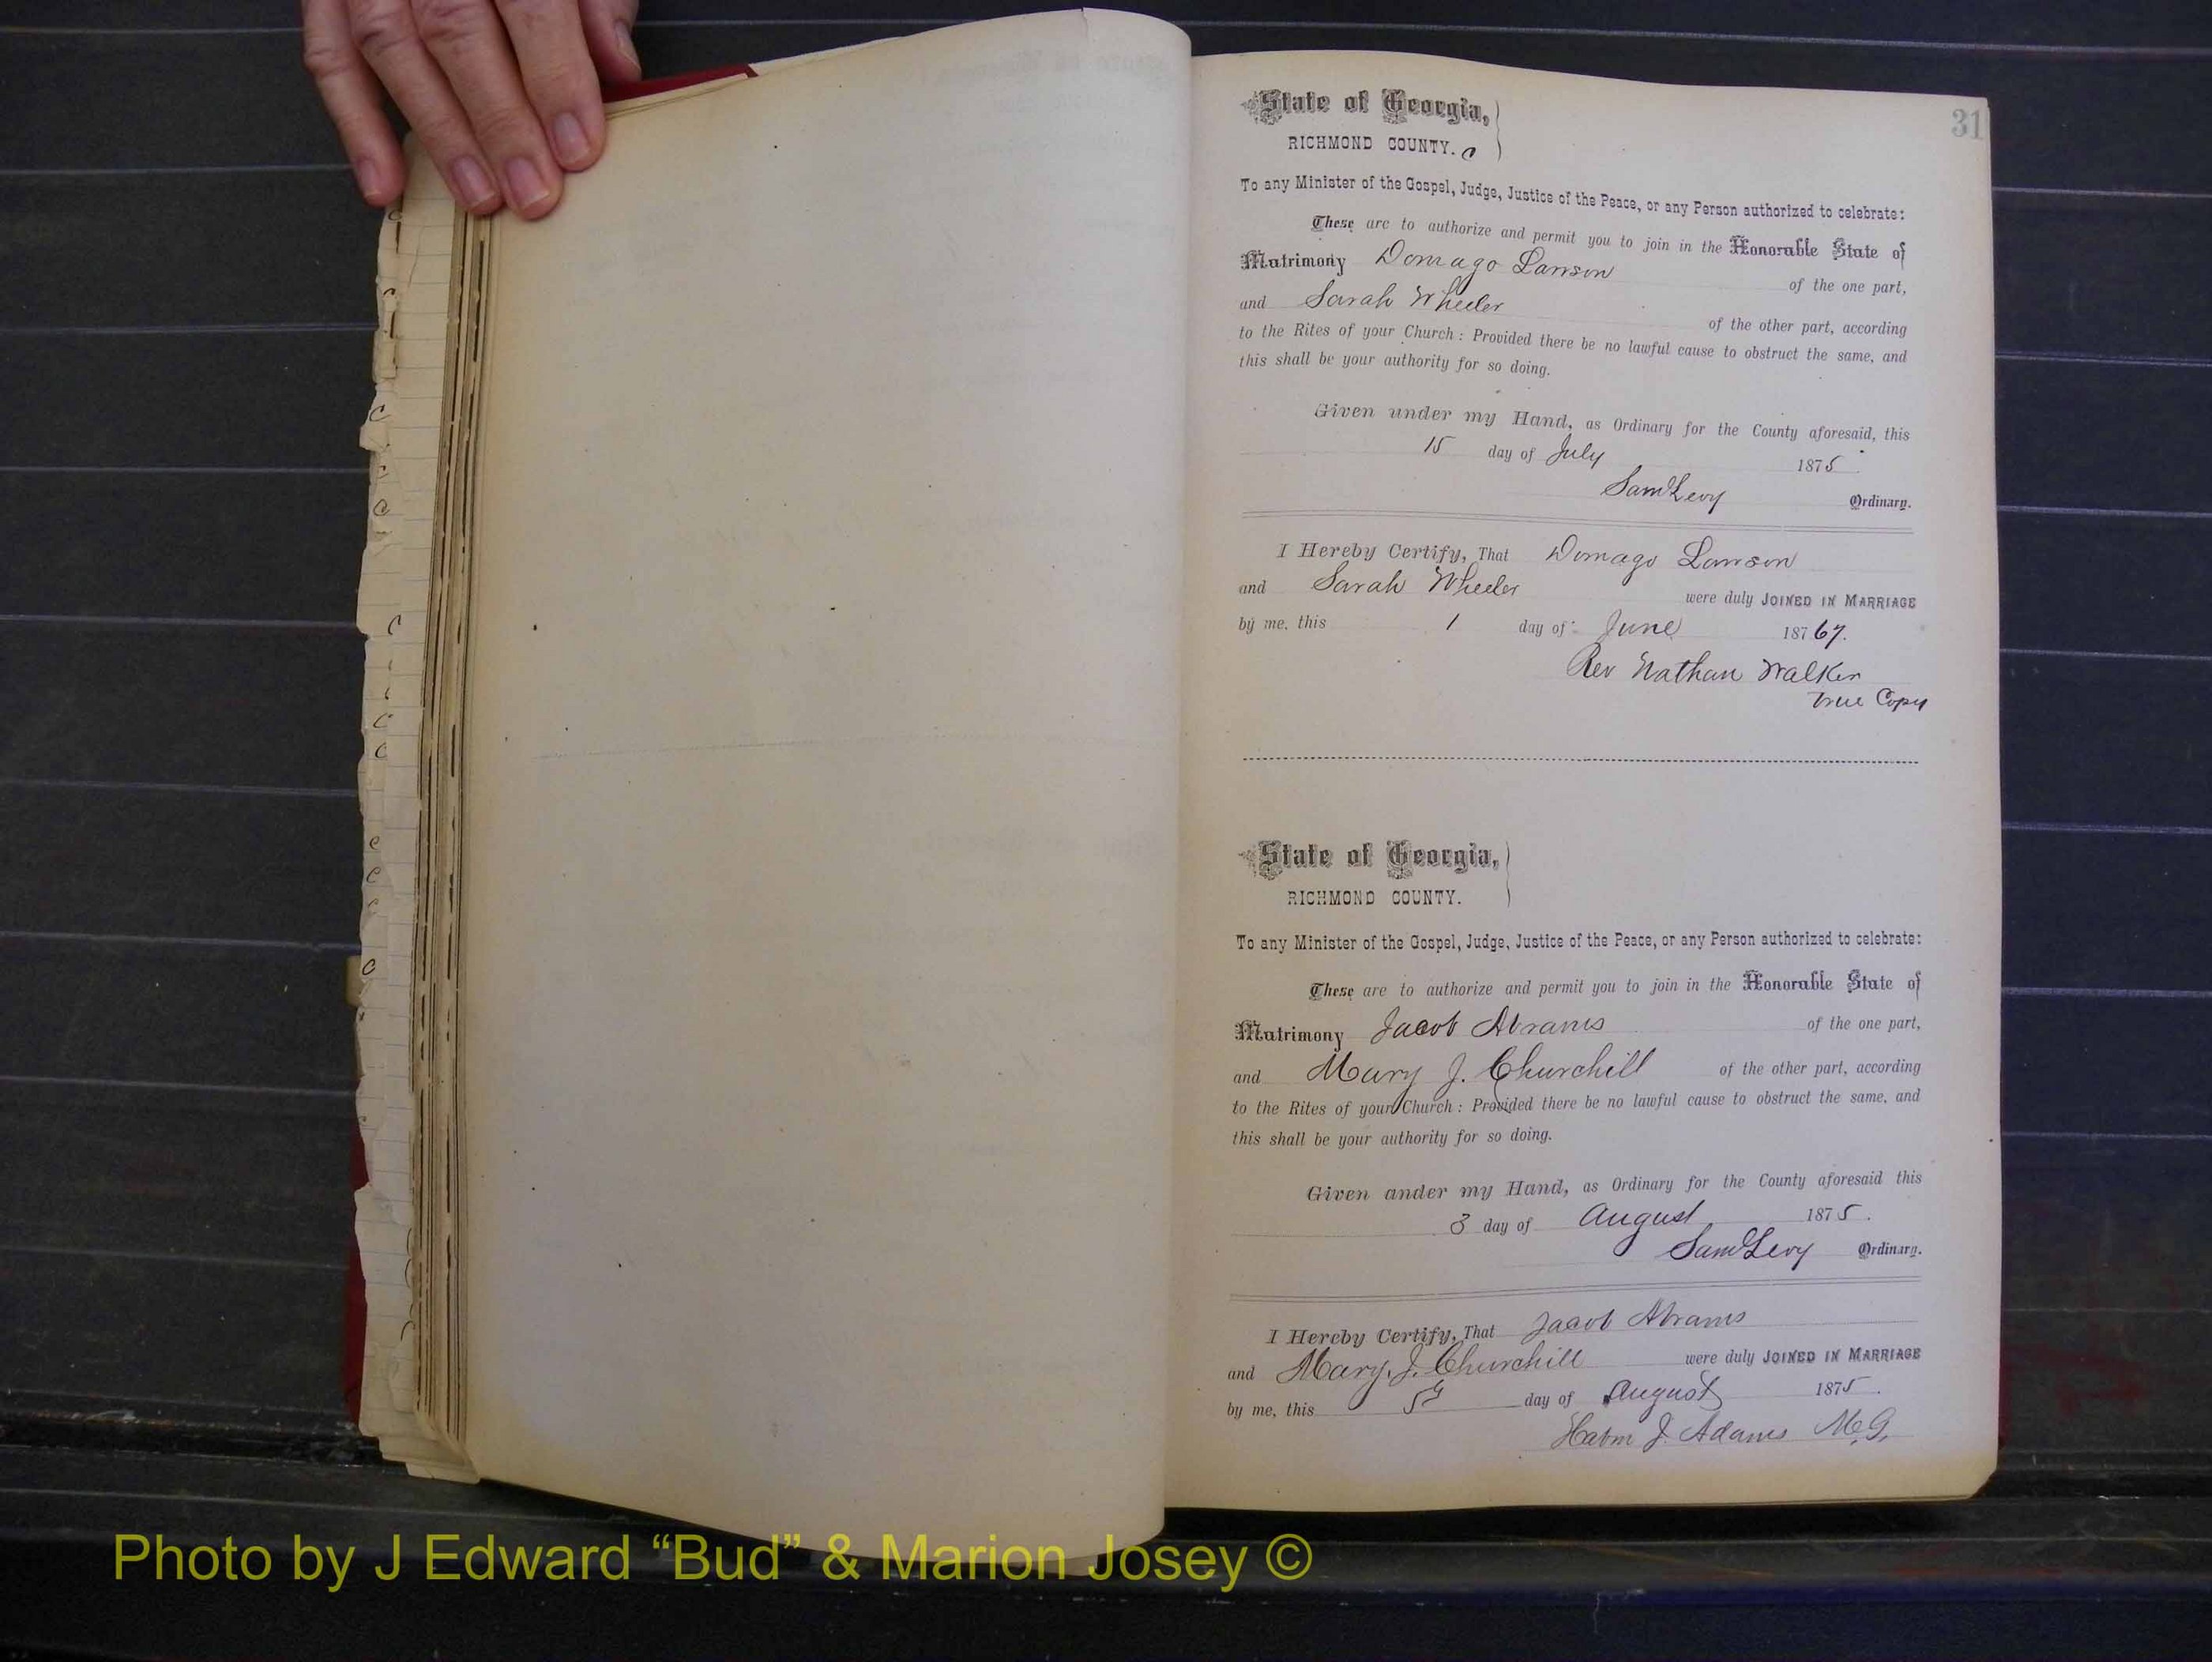 31
State of Georgia,
RICHMOND COUNTY. C
To any Minister of the Gospel, Judge, Justice of the Peace, or any Person authorized to celebrate:
These are to authorize and permit you to join in the Honorable State of
Matrimony Domago Lawson of the one part,
and Sarah Wheeler of the other part, according
to the Rites of your Church: Provided there be no lawful cause to obstruct the same, and
this shall be your authority for so doing.
Given under my Hand, as Ordinary for the County aforesaid, this
15 day of July 1875.
Saml Levy Ordinary.
I Hereby Certify, That Domago Lawson
and Sarah Wheeler were duly JOINED IN MARRIAGE
by me, this 1 day of June 18767.
Rev Nathan Walker
True Copy
State of Georgia,
RICHMOND COUNTY.
To any Minister of the Gospel, Judge, Justice of the Peace, or any Person authorized to celebrate:
These are to authorize and permit you to join in the Honorable State of
Matrimony Jacob Abrams of the one part,
and Mary J. Churchill of the other part, according
to the Rites of your Church: Provided there be no lawful cause to obstruct the same, and
this shall be your authority for so doing.
Given under my Hand, as Ordinary for the County aforesaid this
3 day of August 1875.
Saml Levy Ordinary.
I Hereby Certify, That Jacob Abrams
and Mary J. Churchill were duly JOINED IN MARRIAGE
by me, this 5th day of August 1875.
J. Adams M.G.
Photo by J Edward “Bud” & Marion Josey ©